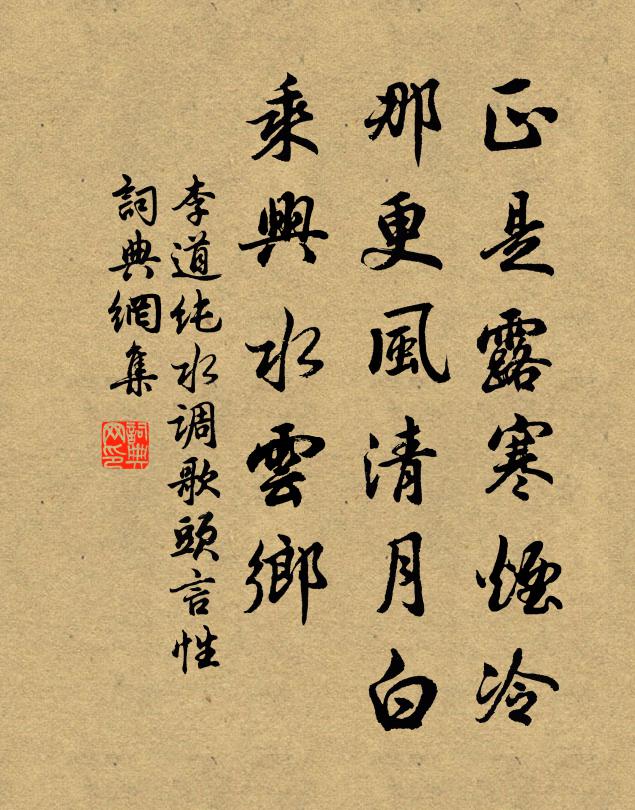 正是露寒煙冷
那更風清月白
乘興水雲鄉
李道纯水调歌頭言性
詞典網集
詞典网印